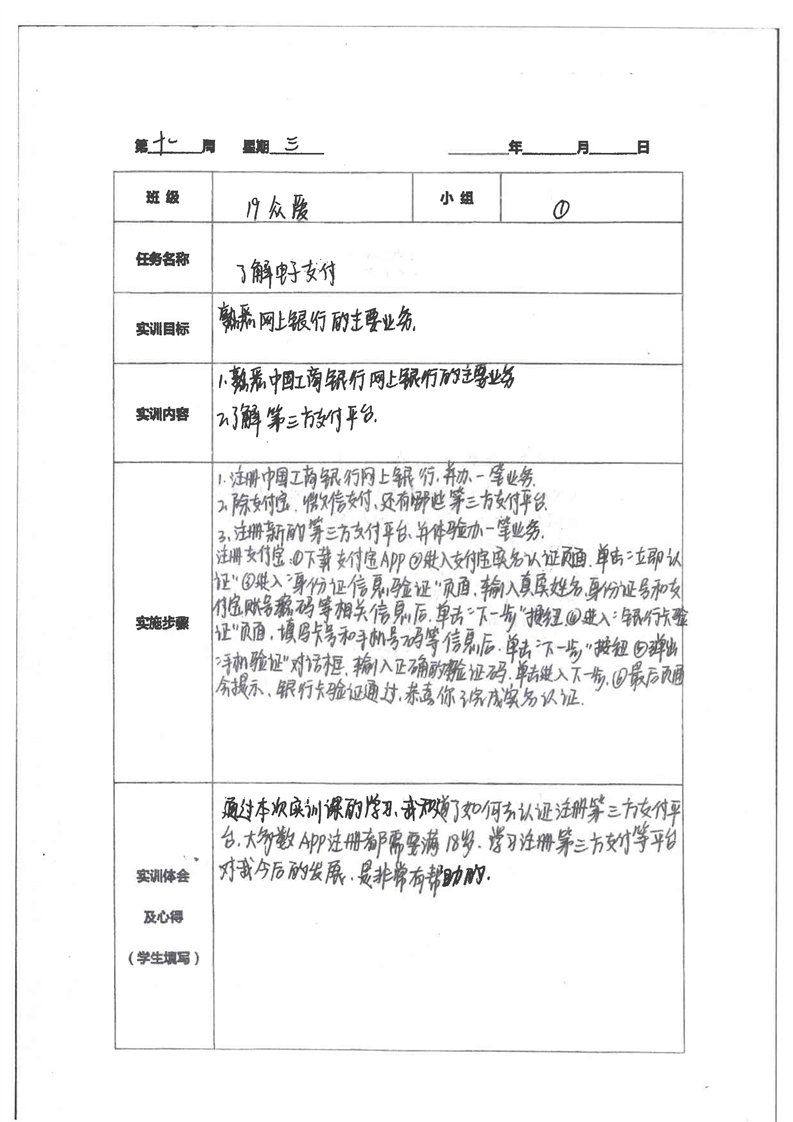 第十一周 星期三 年 月 日
班级 19众爱 小组 ①
任务名称 了解电子支付
实训目标 熟悉网上银行的主要业务.
实训内容
1.熟悉中国工商银行网上银行的主要业务
2.了解第三方支付平台.
实施步骤
1.注册中国工商银行网上银行,并办一笔业务.
2.除支付宝、微信支付,还有哪些第三方支付平台.
3.注册新的第三方支付平台,并体验办一笔业务.
注册支付宝:①下载支付宝APP②进入支付宝实名认证页面,单击“立即认
证”③进入“身份证信息验证”页面,输入真实姓名,身份证号和支
付宝账号密码等相关信息后,单击“下一步”按钮④进入“银行卡验
证”页面,填写卡号和手机号码等信息后,单击“下一步”按钮⑤弹出
“手机验证”对话框,输入正确的验证码,单击进入下一步,⑥最后页面
会提示,银行卡验证通过,恭喜你已完成实名认证.
实训体会
及心得
(学生填写)
通过本次实训课的学习,我知道了如何去认证注册第三方支付平
台,大多数APP注册都需要满18岁.学习注册第三方支付等平台
对我今后的发展,是非常有帮助的.